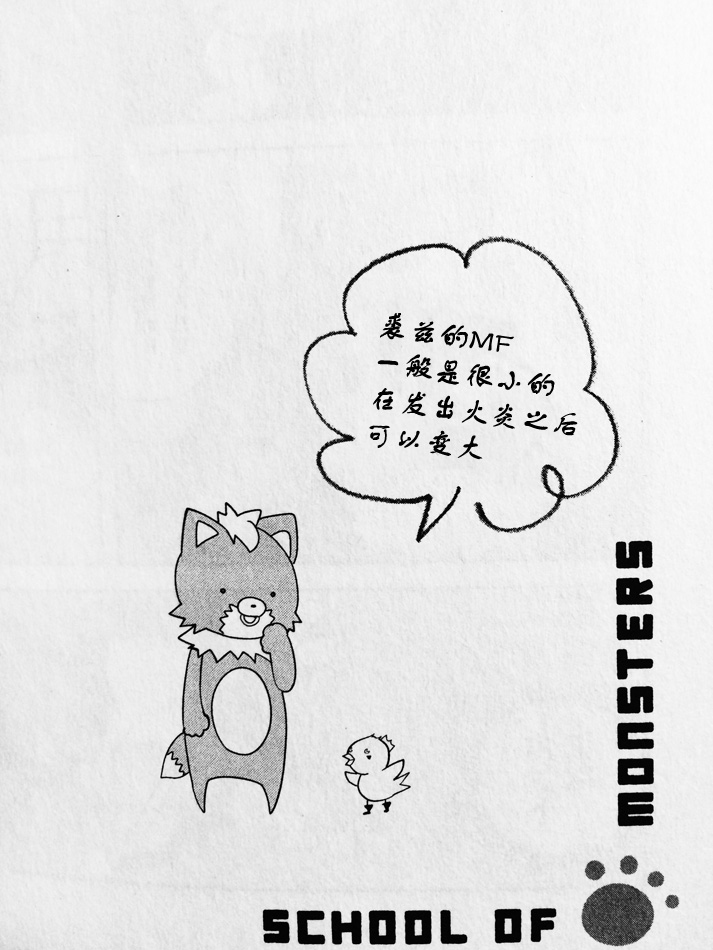 裘兹的MF
一般是很小的
在发出火炎之后
可以变大
SCHOOL OF
MONSTERS